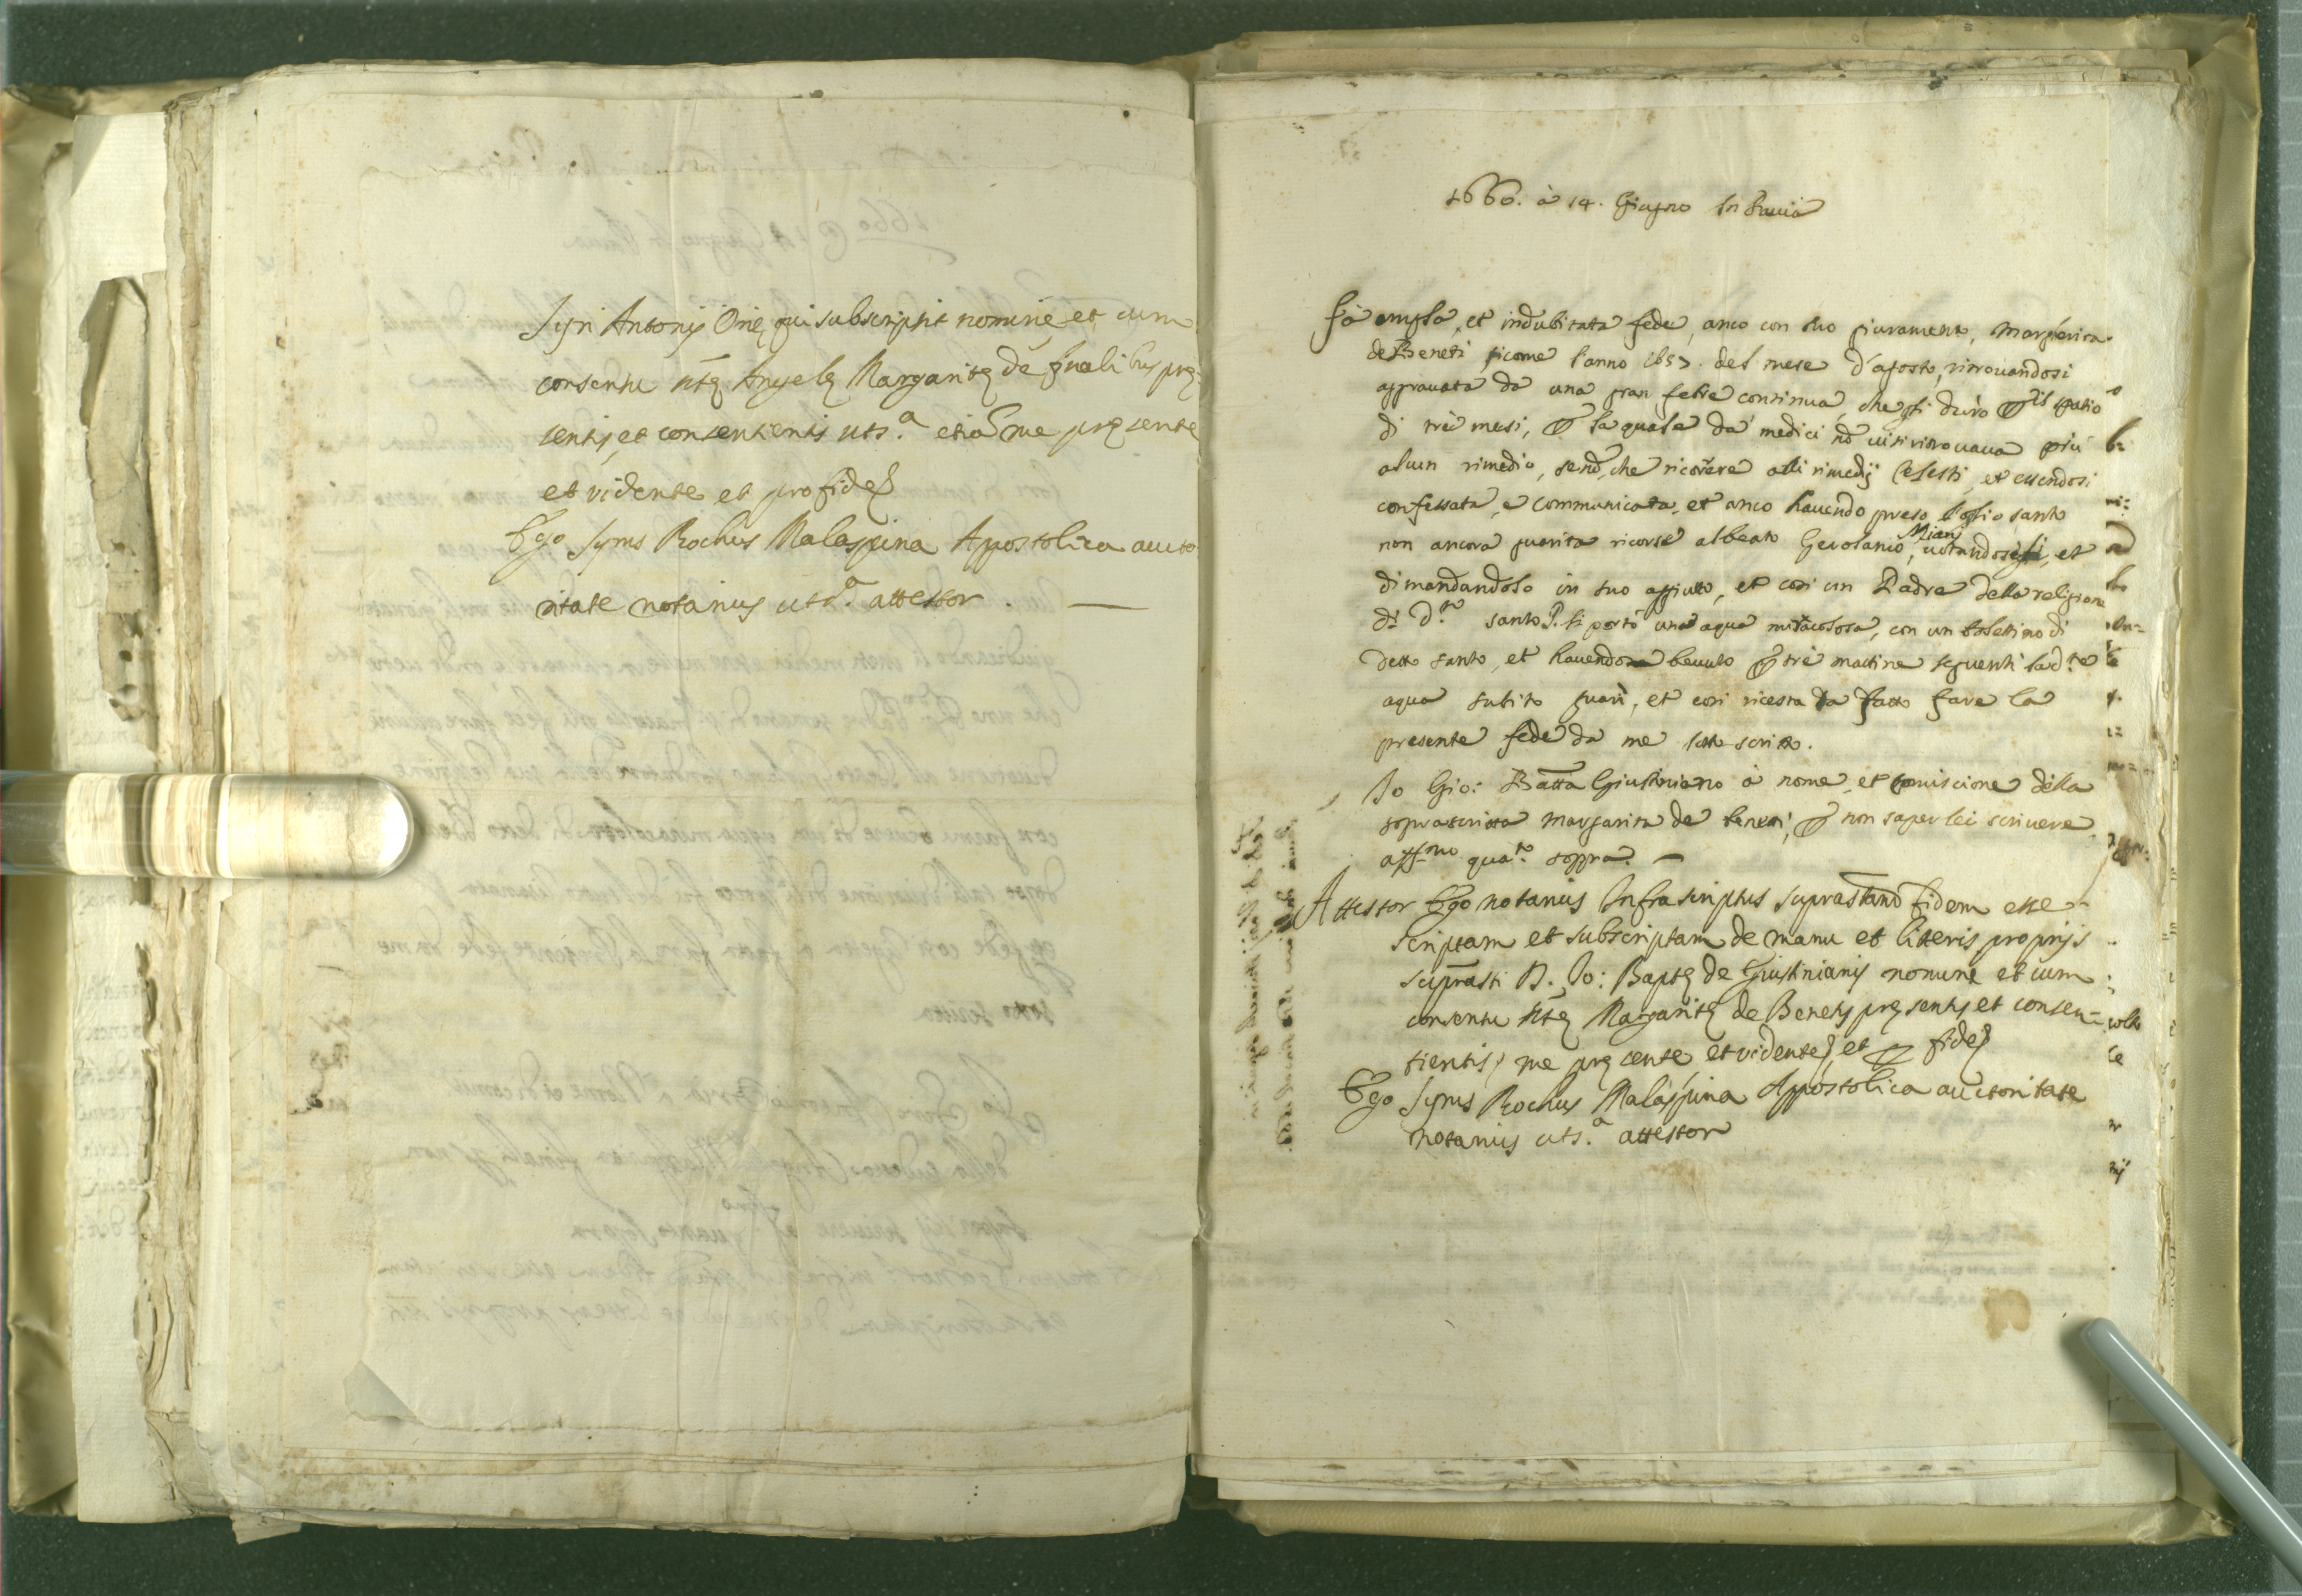 Syri Antonij Orię qui subscripsit nomine et cum
consensu dtę Angelę Margaritę de finalibus prę=
sentis, et consentientis uts.ª etiã me pręsente
et vidente et pro fide
Ego Syrus Rochus Malaspina Apostolica aucto
ritate notarius uts.ª attestor.
1660. à 14. Giugno In Pauia
Fà ampla, et indubitata fede, anco con suo giuramento, Margherita
de Beneti, sicome l'anno 1657. del mese d'agosto, ritrouandosi
aggrauata da una gran febre continua, che gli durò p il spatio
di trè mesi, p la quale da medici nõ ui si ritrouaua più
alcun rimedio, senõ che ricorrere alli rimedij Celesti, et essendosi
confessata, e communicata, et anco hauendo preso l'oglio santo
non ancora guarita ricorse al beato Gerolamo Miani, uotandosegli, et
dimandandolo in suo aggiutto, et così un Padre della religione
di d.to santo P. li portò una aqua miracolosa, con un bolettino di
detto santo, et hauendo beuuto p trè mattine seguenti la d.ta
aqua subito guarì, et così ricesta ha fatto fare la
presente fede da me sottoscritto.
Io Gio: Batta Giustiniano à nome, et comiscione della
soprascritta Margarita de beneti, p non saper lei scriuere
aff.mo qua.to soppra.
Attestor Ego notarius Infrascriptus suprastam fidem esse
scriptam et subscriptam de manu et litteris proprijs
suprasti D. Io: Baptę de Giustinianis nomine et cum
consensu dtę Margaritę de Benetis pręsentis et consen=
tientis, me pręsente, et vidente, et p fide
Ego Syrus Rochus Malaspina Appostolica auctoritate
notarius uts.ª attestor